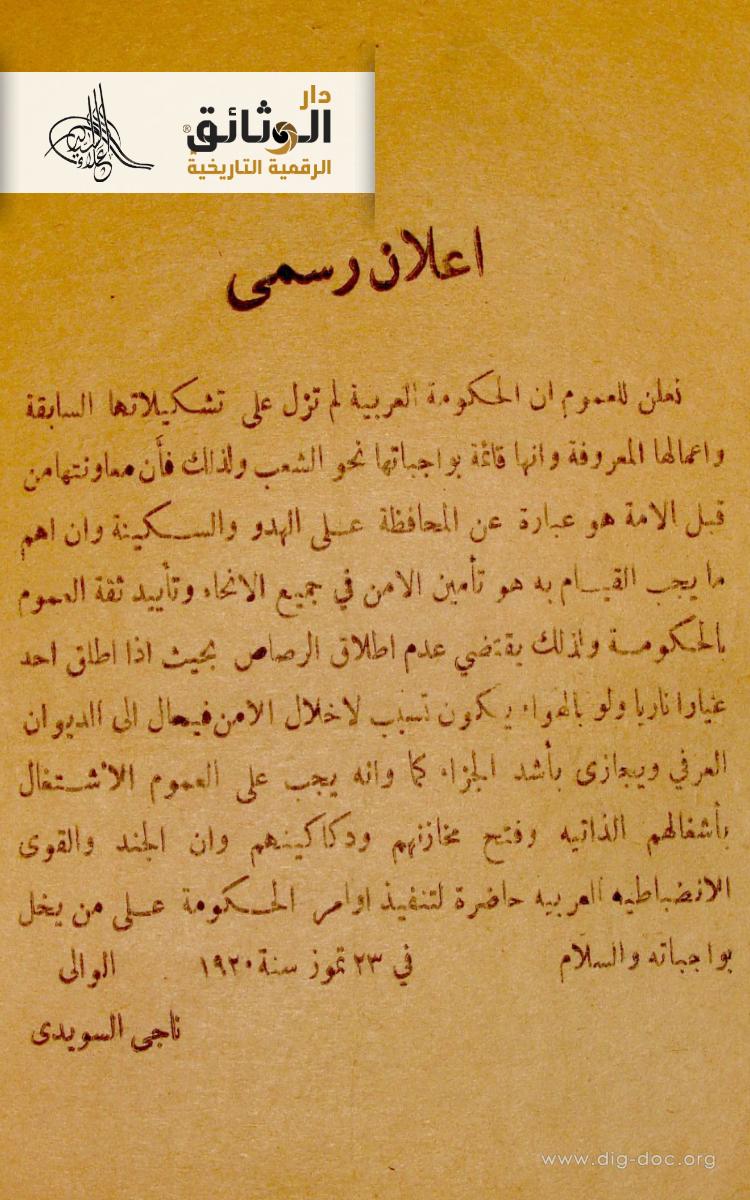 دار
الوثائق®
الرقمية التاريخية
اعلان رسمى
نعلن للعموم ان الحكومة العربية لم تزل على تشكيلاتها السابقة
واعمالها المعروفة وانها قائمة بواجباتها نحو الشعب ولذلك فأن معاونتها من
قبل الامة هو عبارة عن المحافظة عـلى الهدو والسـكينة وان اهم
ما يجب القيـام به هو تأمين الامن في جميع الانحاء وتأييد ثقة العموم
بالحكومـة ولذلك يقتضي عدم اطلاق الرصاص بحيث اذا اطلق احد
عيارا ناريا ولو بالهواء يكون تسبب لاخلال الامن فيحال الى الديوان
العرفي ويجازى بأشد الجزاء كما وانه يجب على العموم الاشـتغال
بأشغالهم الذاتيه وفتح مخازنهم ودكاكينهم وان الجند والقوى
الانضباطيه العربيه حاضرة لتنفيذ اوامر الحـكومة عـلى من يخل
بواجباته والسلام في ٢٣ تموز سنة ١٩٢٠ الوالى
ناجى السويدى
www.dig-doc.org